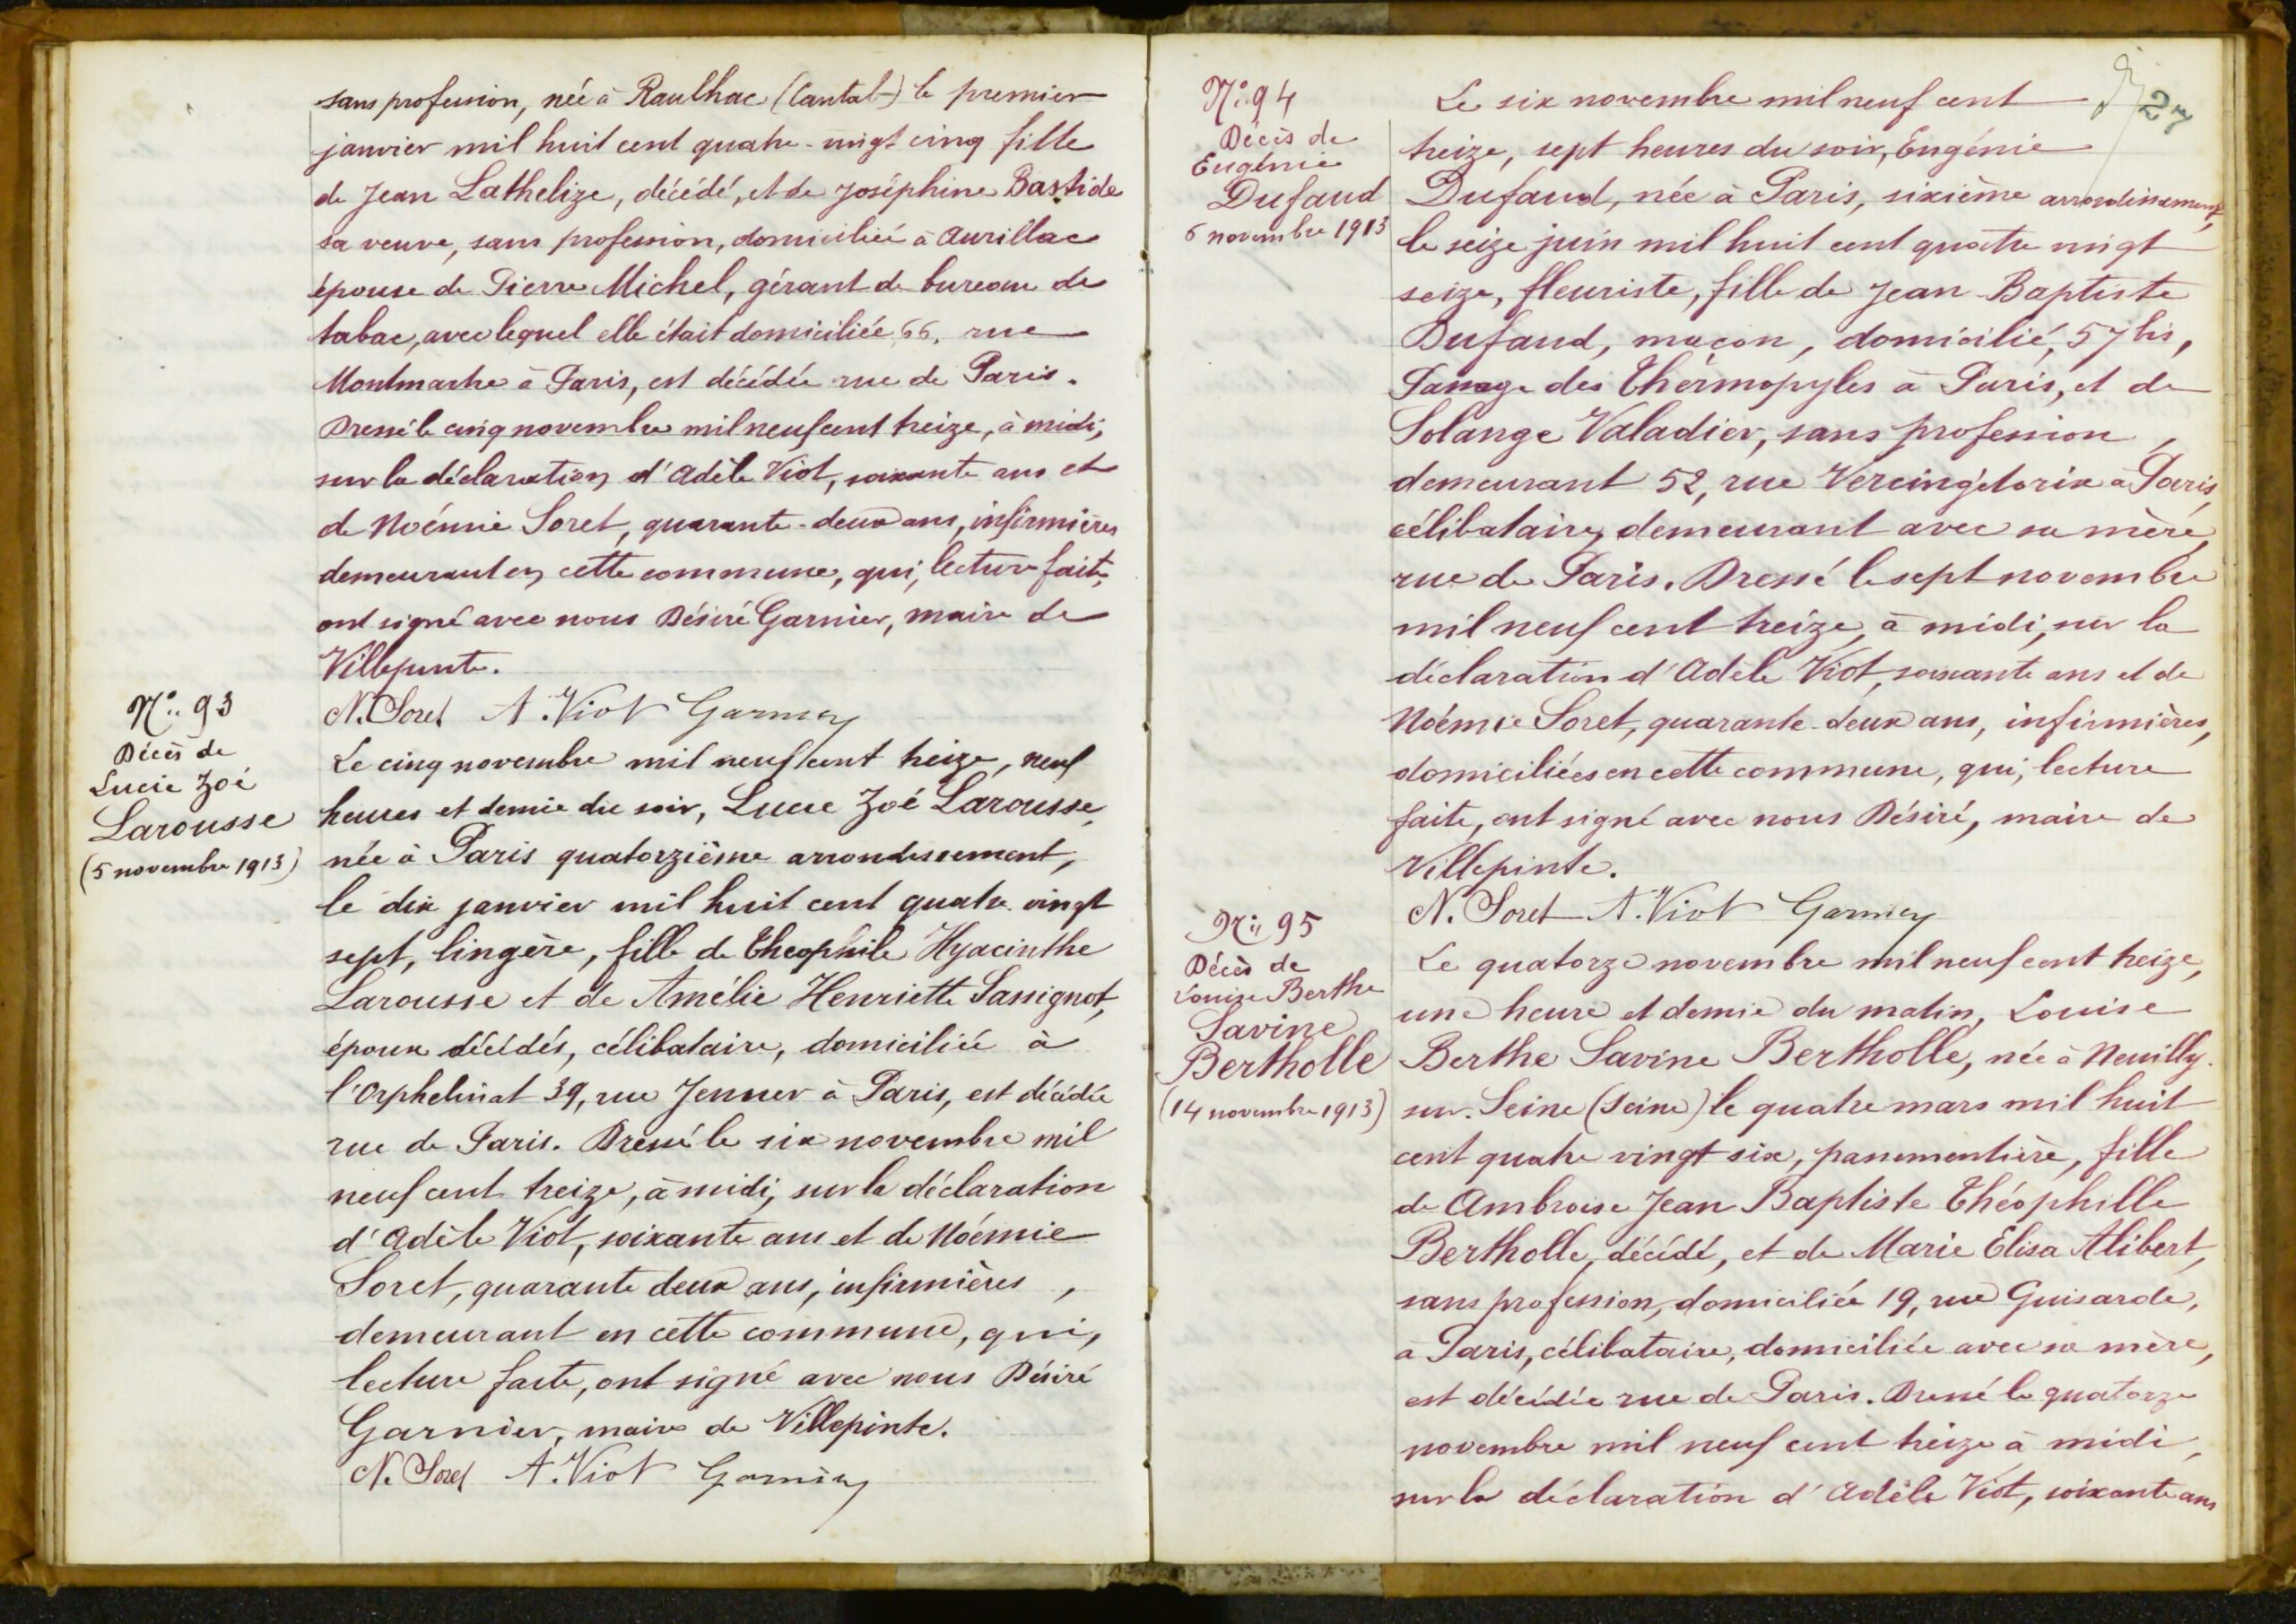 sans profession, née à Raulhac (Cantal) le premier
janvier mil huit cent quatre-vingt cinq fille
de Jean Lathelize, décédé, et de Joséphine Bastide
sa veuve, sans profession, domiciliée à Aurillac
épouse de Pierre Michel, gérant de bureau de
tabac, avec lequel elle était domiciliée, 66, rue
Montmartre à Paris, est décédée rue de Paris.
Dressé le cinq novembre mil neuf cent treize, à midi,
sur la déclaration d'Adèle Viot, soixante ans et
de Noémie Soret, quarante-deux ans, infirmières
demeurant en cette commune, qui, lecture faite,
ont signé avec nous Désiré Garnier, maire de
Villepinte.
N. Soret A. Viot Garnier
N° 93
Décès de
Lucie Zoé
Larousse
(5 novembre 1913)
Le cinq novembre mil neuf cent treize, neuf
heures et demie du soir, Lucie Zoé Larousse,
née à Paris quatorzième arrondissement,
le dix janvier mil huit cent quatre vingt
sept, lingère, fille de Theophile Hyacinthe
Larousse et de Amélie Henriette Sassignot,
époux décédés, célibataire, domiciliée à
l'Orphelinat 39, rue Jenner à Paris, est décédée
rue de Paris. Dressé le six novembre mil
neuf cent treize, à midi, sur la déclaration
d'Adèle Viot, soixante ans et de Noémie
Soret, quarante deux ans, infirmières,
demeurant en cette commune, qui,
lecture faite, ont signé avec nous Désiré
Garnier, maire de Villepinte.
N. Soret A. Viot Garnier
27
N° 94
Décès de
Eugénie
Dufaud
6 novembre 1913
Le six novembre mil neuf cent
treize, sept heures du soir, Eugénie
Dufaud, née à Paris, sixième arrondissement,
le seize juin mil huit cent quatre vingt
seize, fleuriste, fille de Jean-Baptiste
Dufaud, maçon, domicilié, 57 bis,
Passage des Thermopyles à Paris, et de
Solange Valadier, sans profession,
demeurant 52, rue Vercingétorix à Paris,
célibataire, demeurant avec sa mère,
rue de Paris. Dressé le sept novembre
mil neuf cent treize, à midi, sur la
déclaration d'Adèle Viot, soixante ans et de
Noémie Soret, quarante-deux ans, infirmières,
domiciliées en cette commune, qui, lecture
faite, ont signé avec nous Désiré, maire de
Villepinte.
N. Soret A. Viot Garnier
N° 95
Décès de
Louise Berthe
Savine
Bertholle
(14 novembre 1913)
Le quatorze novembre mil neuf cent treize,
une heure et demie du matin, Louise
Berthe Savine Bertholle, née à Neuilly-
sur-Seine (Seine) le quatre mars mil huit
cent quatre vingt six, passementière, fille
de Ambroise Jean Baptiste Théophille
Bertholle, décédé, et de Marie Elisa Alibert,
sans profession, domiciliée 19, rue Guisarde,
à Paris, célibataire, domiciliée avec sa mère,
est décédée rue de Paris. Dressé le quatorze
novembre mil neuf cent treize à midi,
sur la déclaration d'Adèle Viot, soixante ans